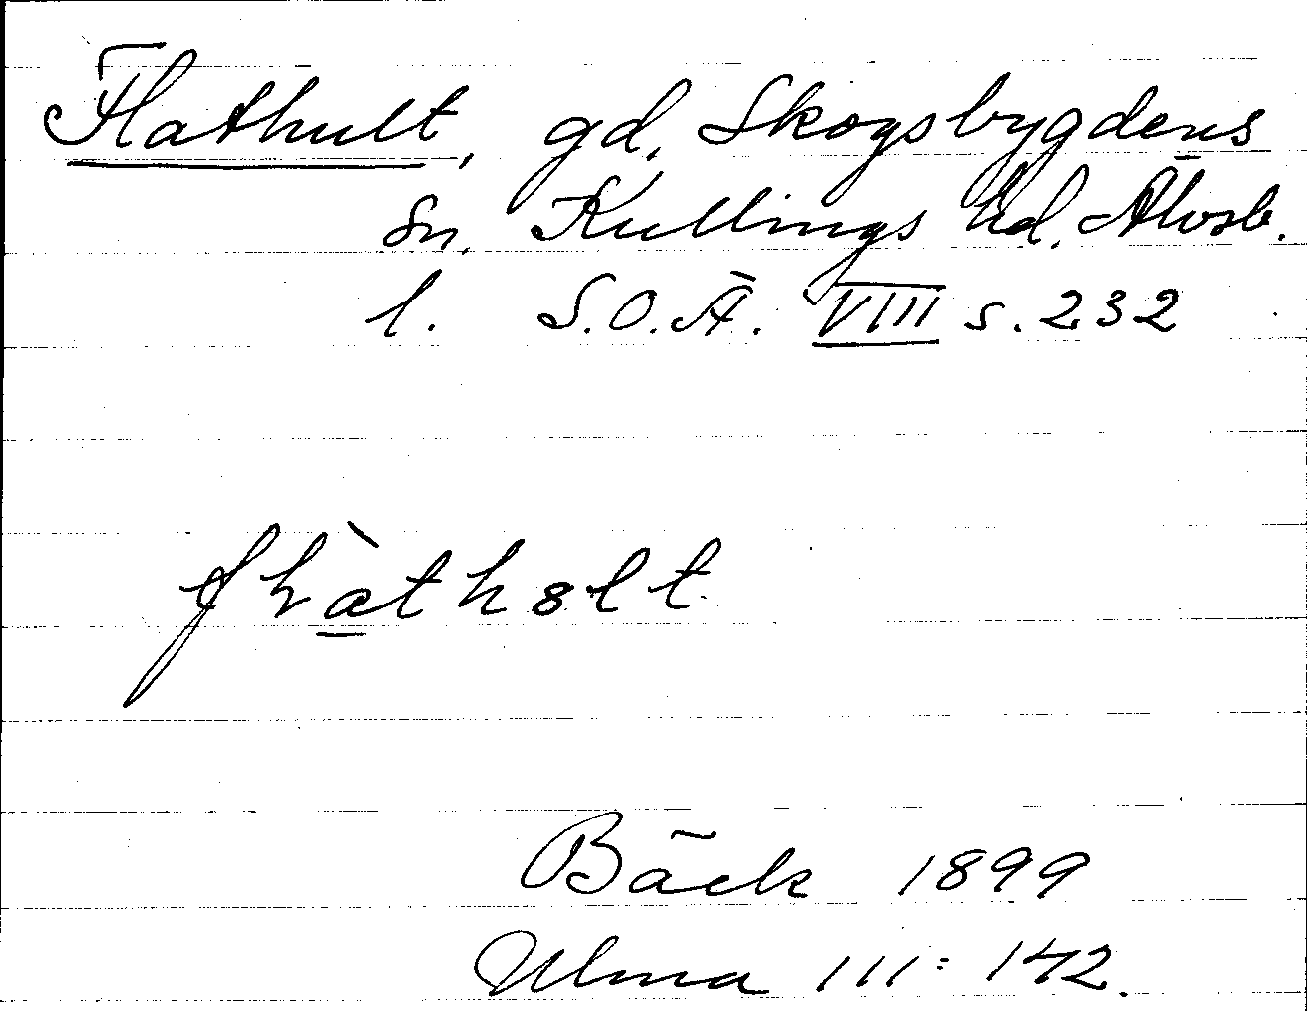 Flathult, gd, Skogsbygdens
sn, Kullings hd, Älvsb.
l. S.O.Ä. VIII s. 232
Bäck 1899
Ulma 111:142.